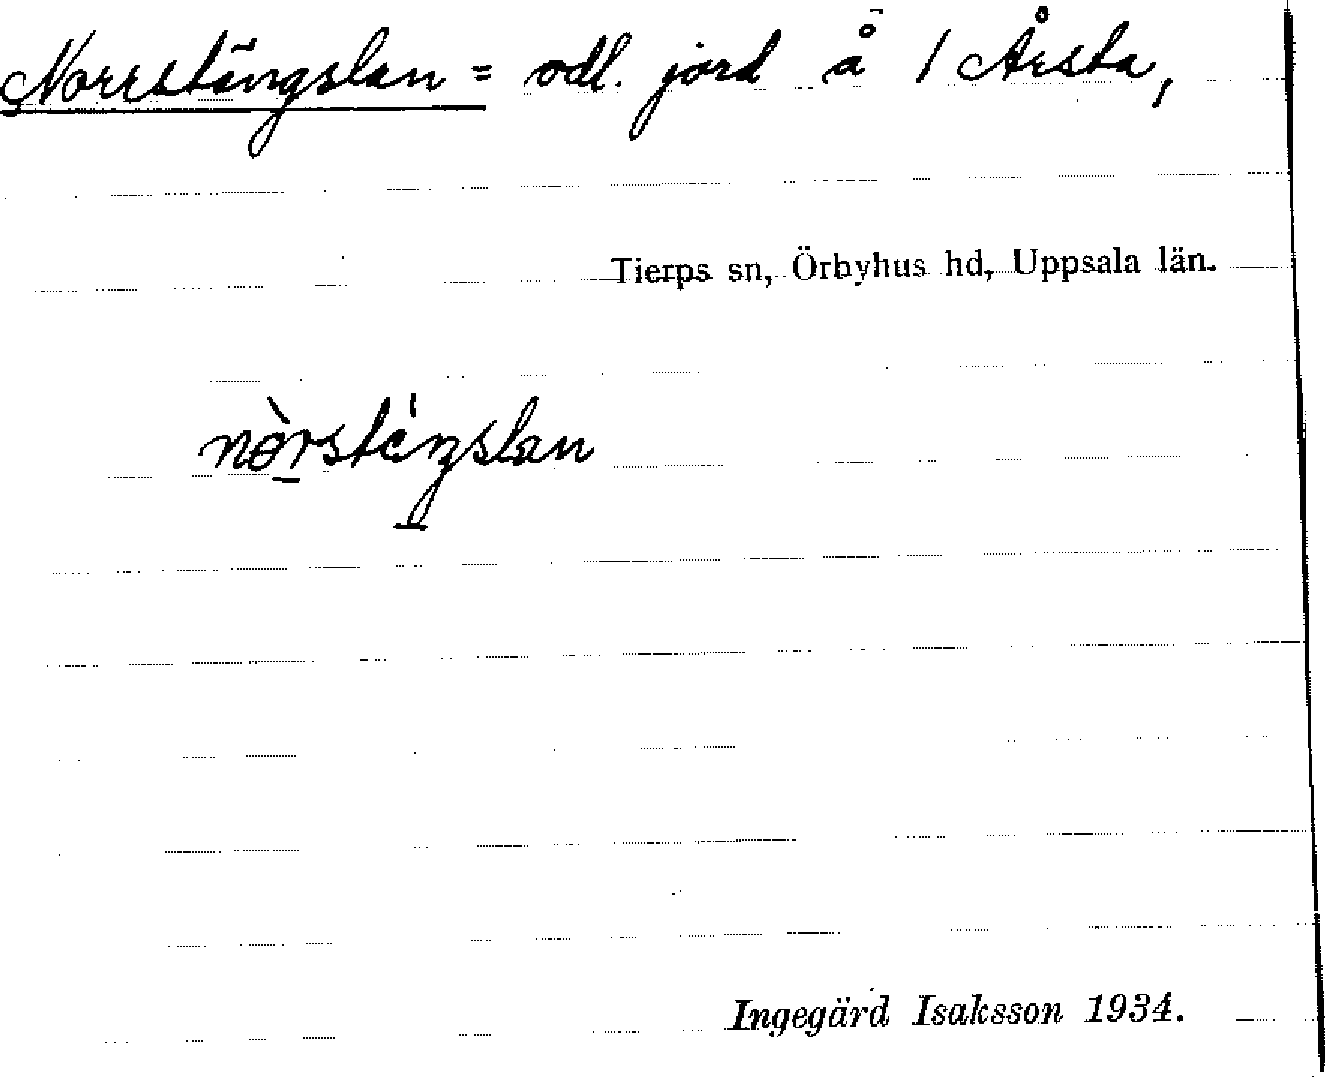 Norrstängslan = odl. jord å 1 Årsta,
Tierps sn, Örbyhus hd, Uppsala län.
nòrsténgslan
Ingegärd Isaksson 1934.